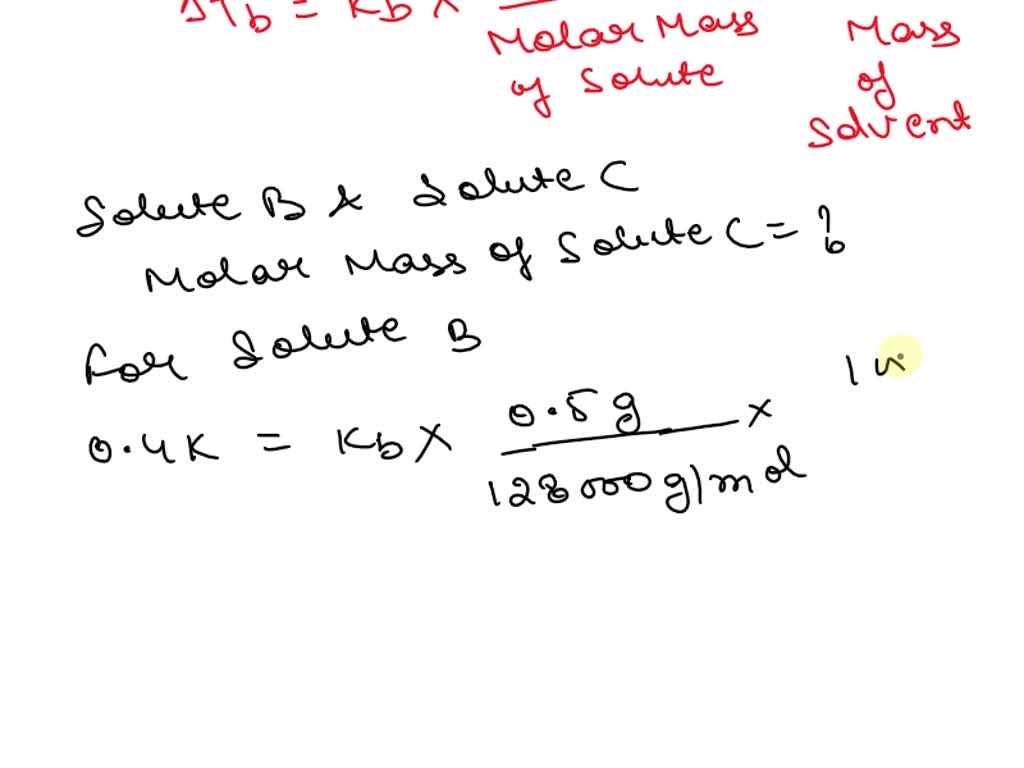 ΔTb = Kb ×
Molar Mass Mass
of Solute of
Solvent
Solute B & Solute C
Molar Mass of Solute C = ?
For Solute B
0.4K = Kb × 0.5g × 1 K
128000 g/mol